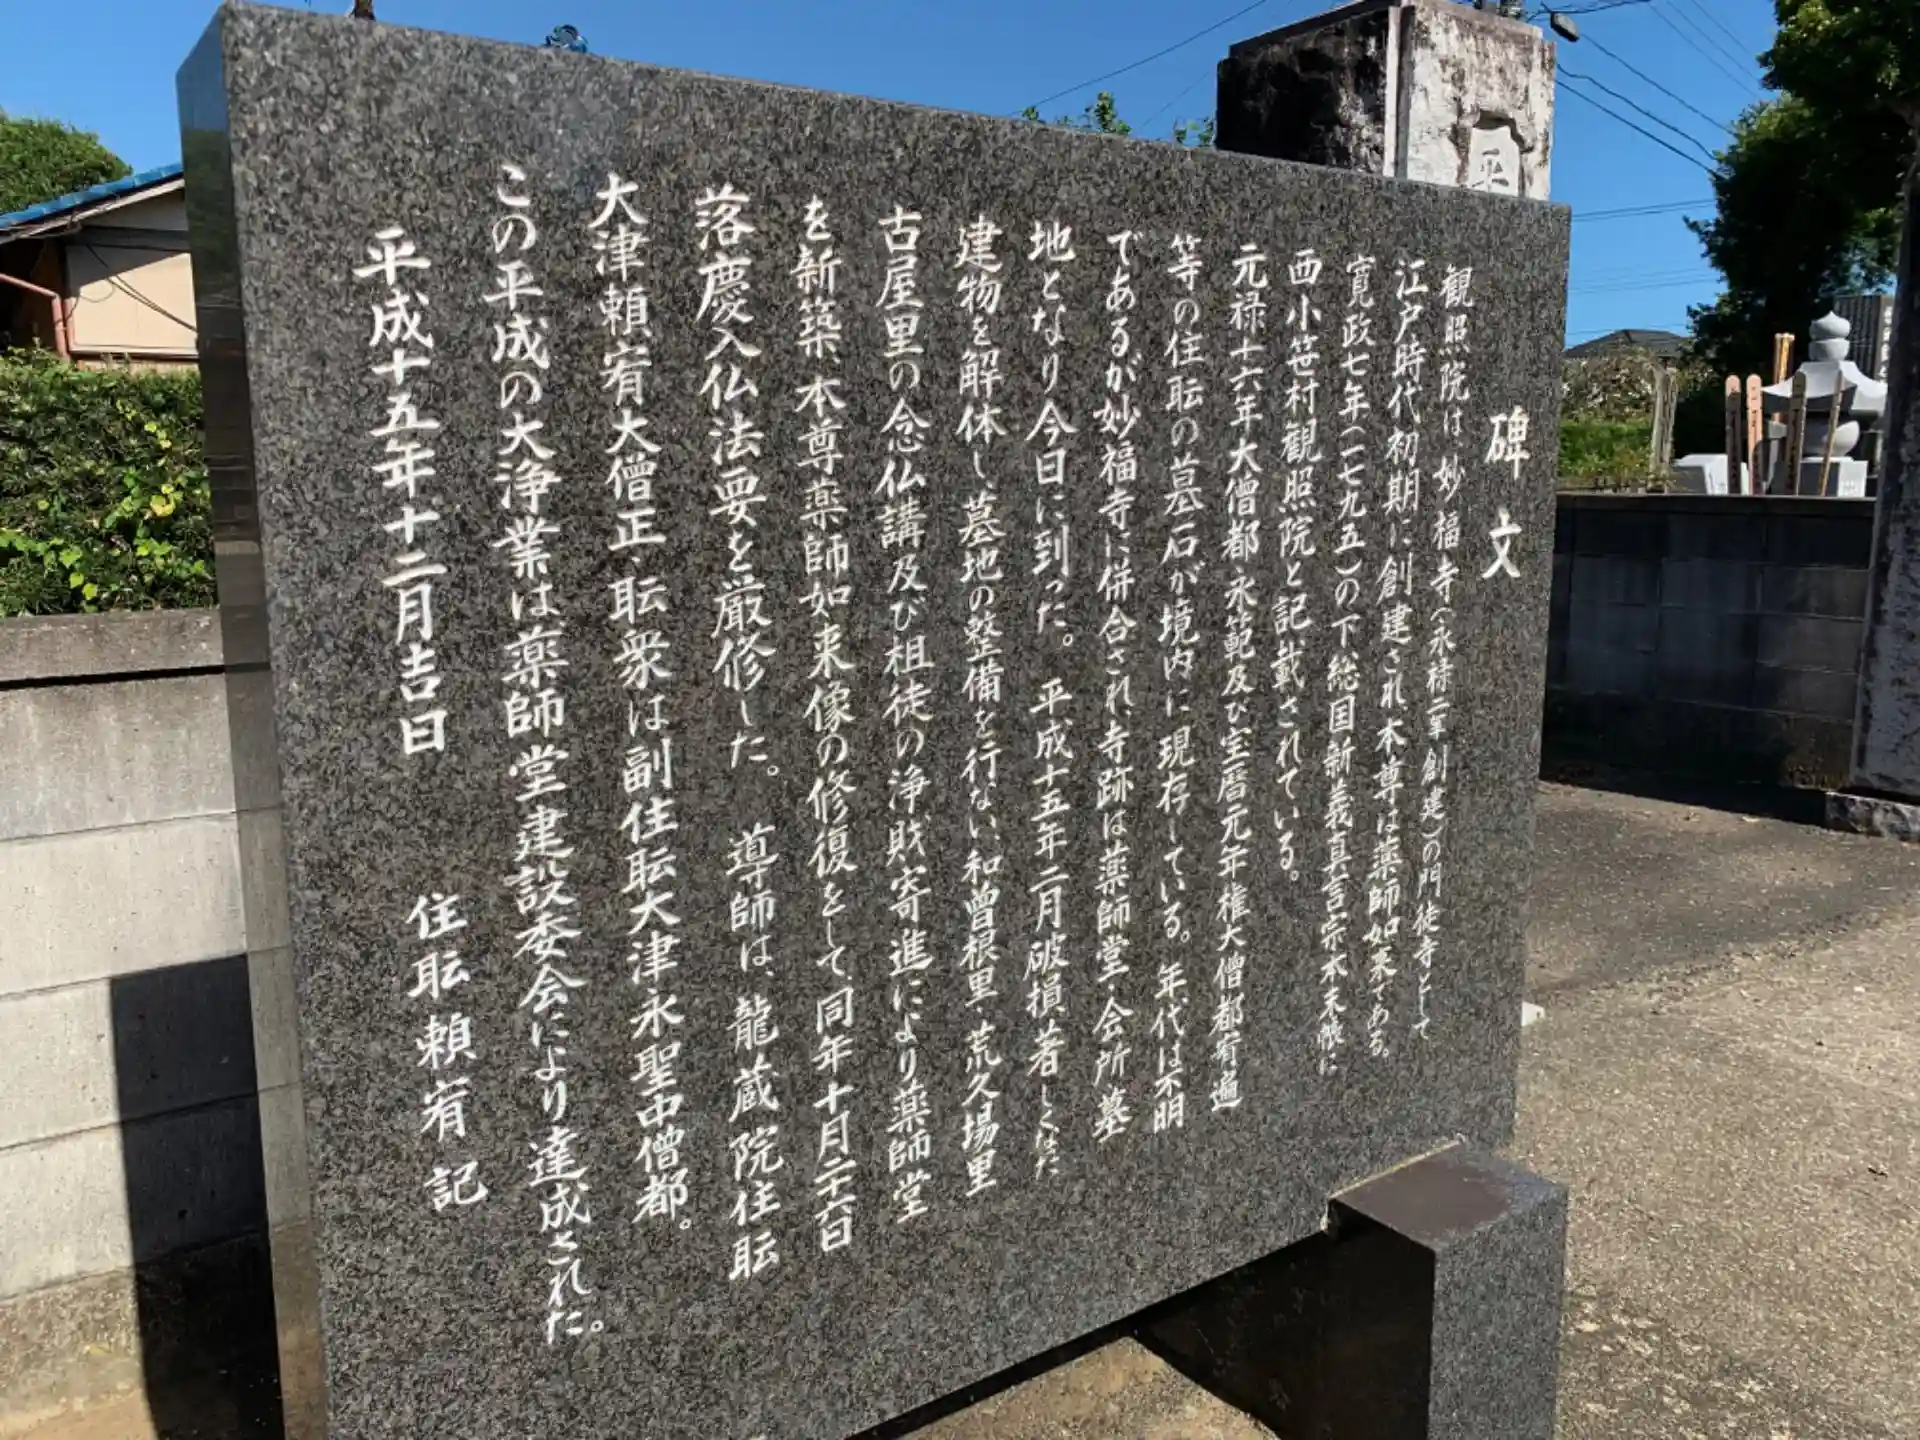 碑文
観照院は、妙福寺(永禄二年創建)の門徒寺として
江戸時代初期に創建され本尊は薬師如来である。
寛政七年(一七九五)の下総国新義真言宗本末帳に
西小笹村観照院と記載されている。
元禄十六年大僧都永範及び宝暦元年権大僧都宥遍
等の住職の墓石が境内に現存している。年代は不明
であるが妙福寺に併合され寺跡は薬師堂・会所・墓
地となり今日に到った。平成十五年二月破損著しくなった
建物を解体し墓地の整備を行ない、和曽根里・荒久場里
古屋里の念仏講及び祖徒の浄財寄進により薬師堂
を新築、本尊薬師如来像の修復をして、同年十月二十六日
落慶入仏法要を厳修した。導師は、龍蔵院住転
大津頼宥大僧正、転衆は副住転大津永聖中僧都。
この平成の大浄業は薬師堂建設委会により達成された。
平成十五年十二月吉日
住転頼宥記
平